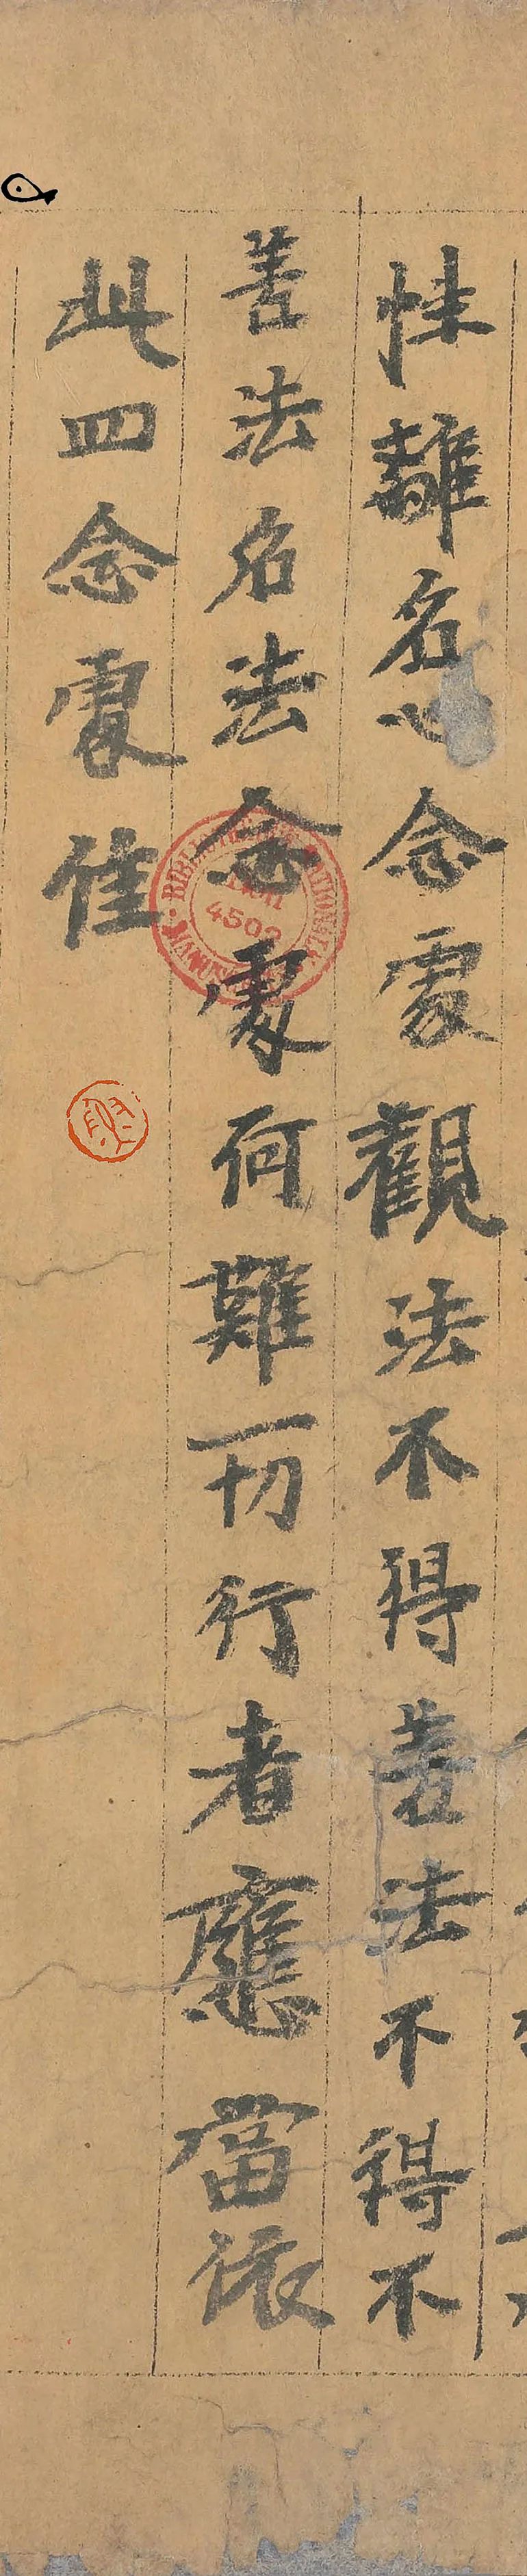 性離名心念處觀法不得善法不得不
善法名法念處何難一切行者應當依
此四念處住
4502